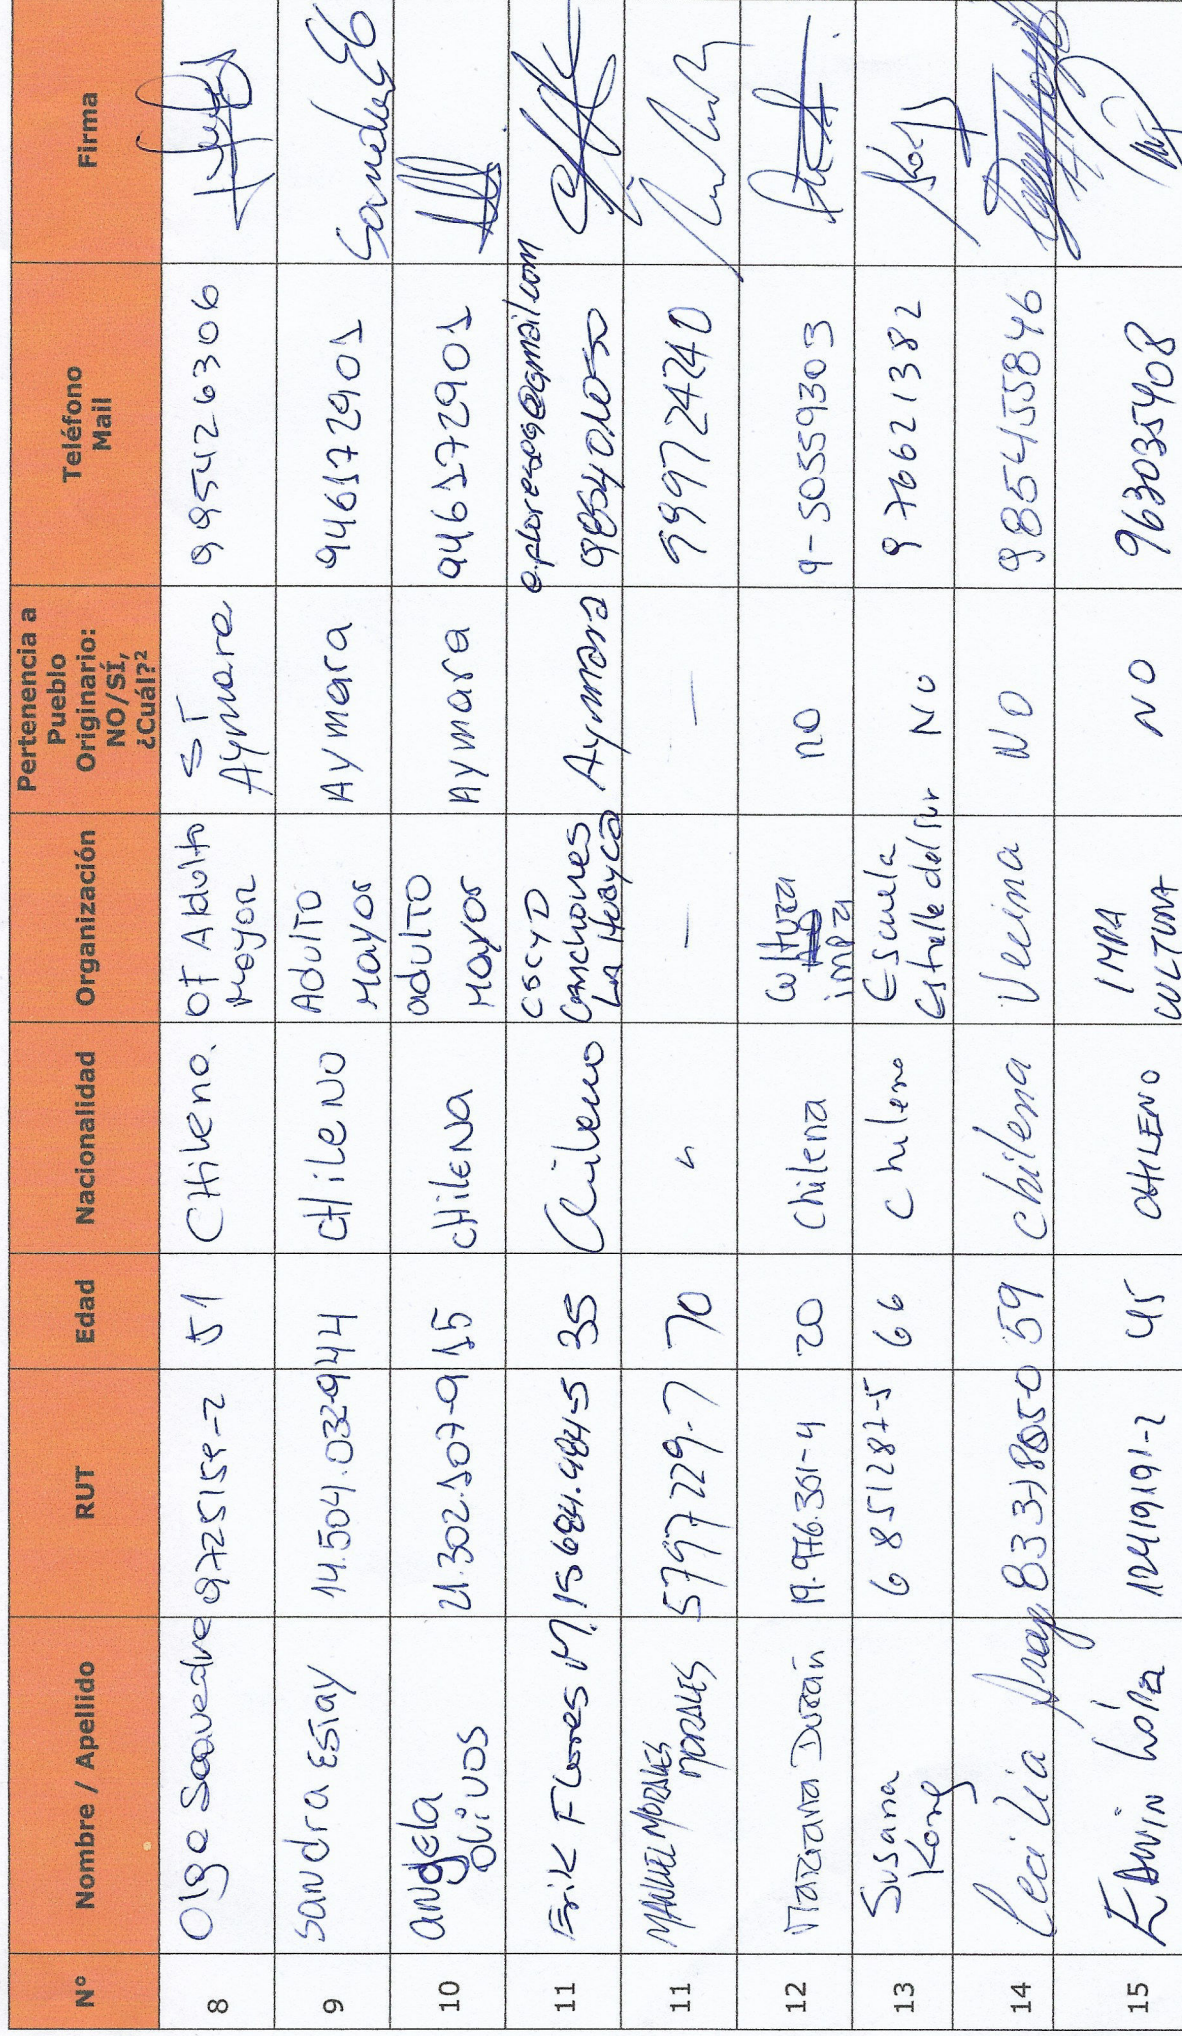 Nº Nombre / Apellido RUT Edad Nacionalidad Organización Pertenencia a Pueblo Originario: NO/SÍ, ¿Cuál?² Teléfono Mail Firma
8 Olga Saavedra 9725159-2 51 CHileno. OF Adulto Mayor SI Aymara 995426306
9 Sandra Estay 14.504.032-9 44 CHileNO Adulto Mayor Aymara 946172901
10 Angela Olivos 21.302.107-9 15 CHileNA adulto Mayor Aymara 946172901
11 Erik Flores M. 15684.484-5 35 Chileno CSCyD Canchones La Huayca Aymara
11 MANUEL MORALES MORALES 5797229-7 70 " — — 999724240
12 Mariana Durán 19.976.301-4 20 Chilena Cultura impa no 9-50559303
13 Susana Kong 6851287-5 66 Chilena Escuela Estrella del sur No 976621382
14 Cecilia Araya 59 Chilena Vecina NO 985455846
15 Edwin 12419191-2 45 CHILENO IMPA CULTURA NO 963035408